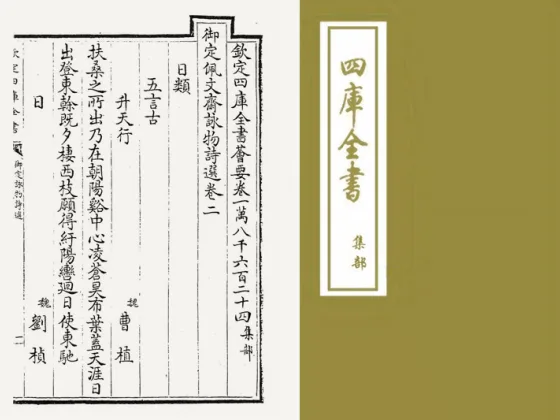 欽定四庫全書薈要卷一萬八千六百二十四 集部
御定佩文齋詠物詩選卷二
日類
五言古
升天行 魏 曹植
扶桑之所出乃在朝陽谿中心凌蒼昊布葉蓋天涯日
出登東榦既夕棲西枝願得紆陽轡廻日使東馳
日 魏 劉楨
欽定四庫全書
御定詠物詩選
二
四庫全書
集部